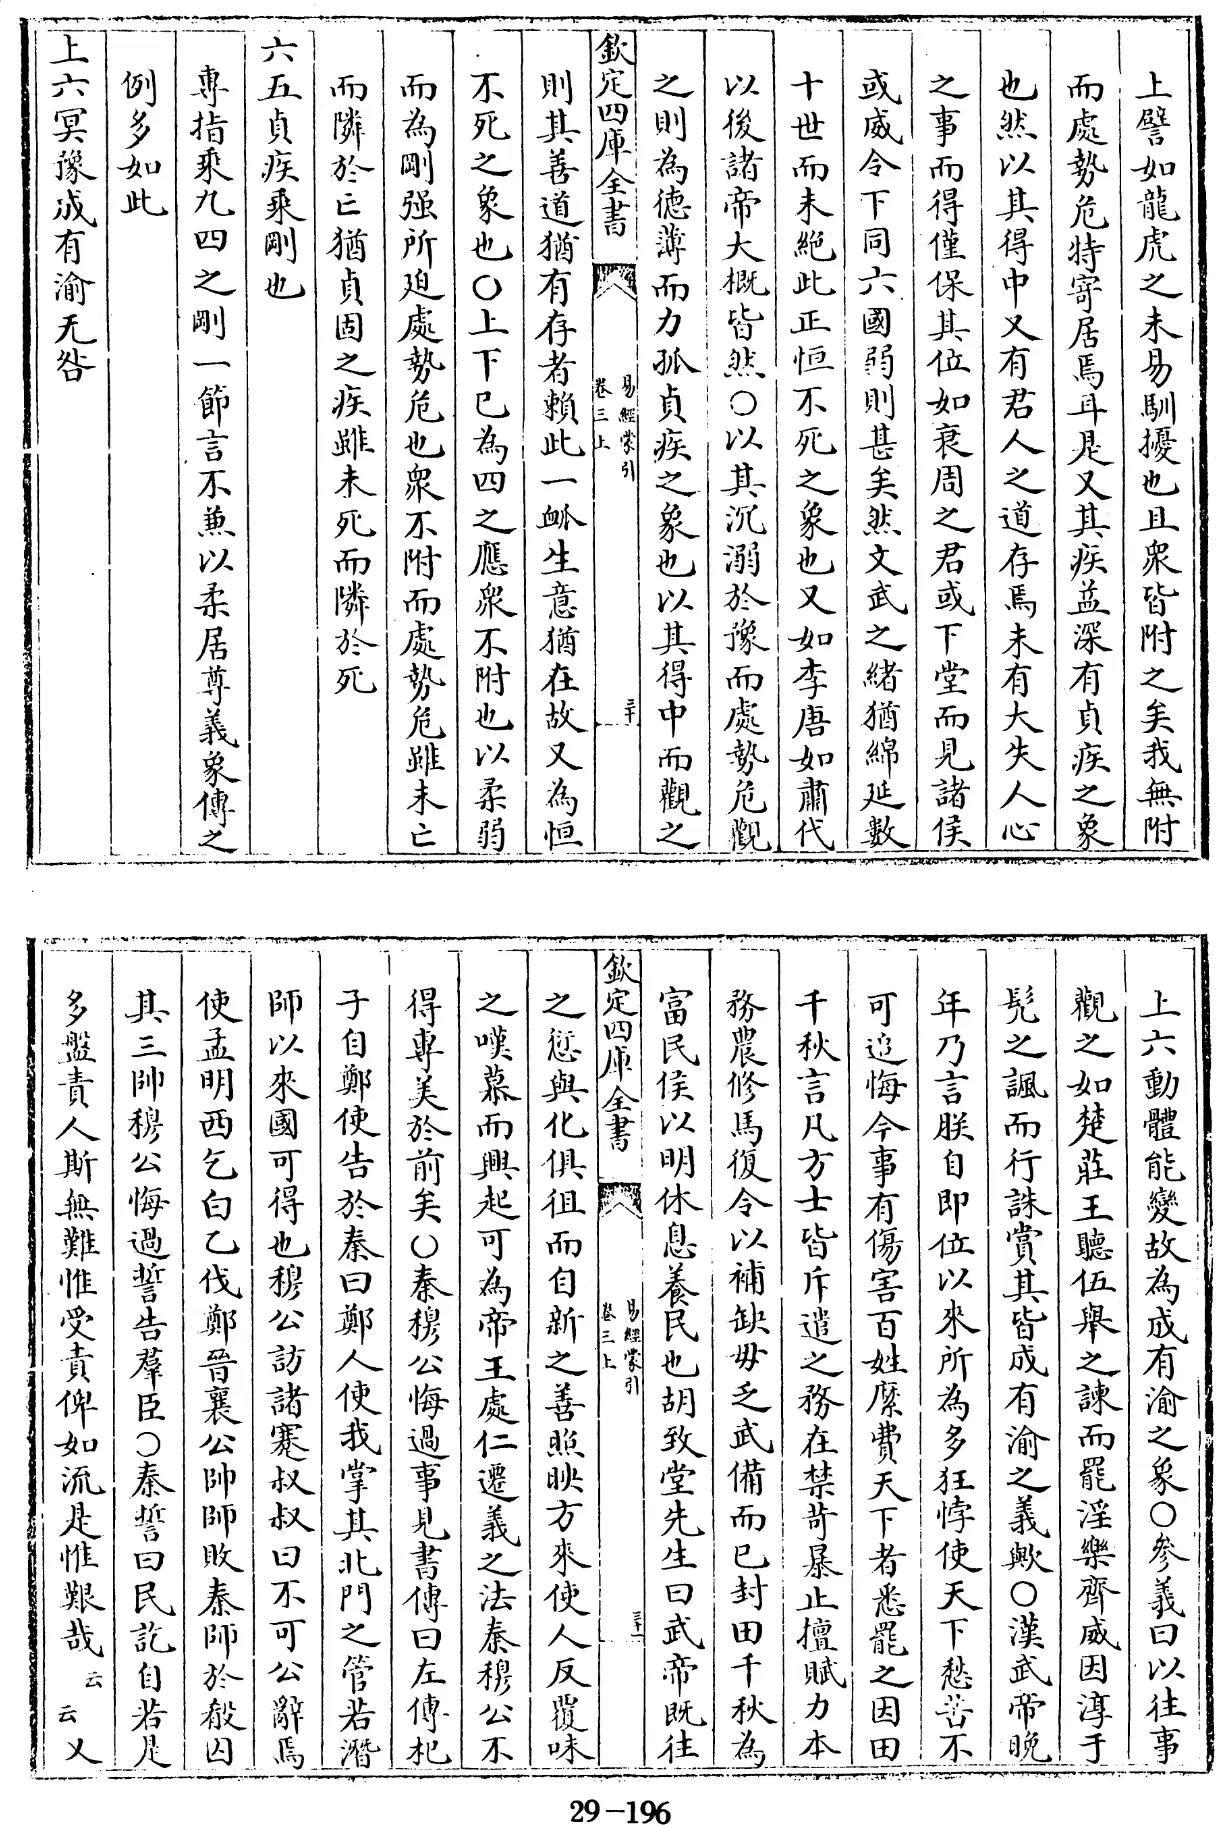 上譬如龍虎之未易馴擾也且衆皆附之矣我無附
而處勢危特寄居焉耳是又其疾益深有貞疾之象
也然以其得中又有君人之道存焉未有大失人心
之事而得僅保其位如衰周之君或下堂而見諸侯
或威令下同六國弱則甚矣然文武之緒猶綿延數
十世而未絶此正恒不死之象也又如李唐如肅代
以後諸帝大概皆然〇以其沉溺於豫而處勢危觀
之則為德薄而力孤貞疾之象也以其得中而觀之
欽定四庫全書
易經蒙引
卷三上
三十
則其善道猶有存者賴此一衇生意猶在故又為恒
不死之象也〇上下已為四之應衆不附也以柔弱
而為剛强所迫處勢危也衆不附而處勢危雖未亡
而隣於亡猶貞固之疾雖未死而隣於死
六五貞疾乘剛也
專指乘九四之剛一節言不兼以柔居尊義象傳之
例多如此
上六冥豫成有渝无咎
上六動體能變故為成有渝之象〇參義曰以往事
觀之如楚莊王聽伍舉之諫而罷淫樂齊威因淳于
髠之諷而行誅賞其皆成有渝之義歟〇漢武帝晚
年乃言朕自即位以來所為多狂悖使天下愁苦不
可追悔今事有傷害百姓縻費天下者悉罷之因田
千秋言凡方士皆斥遣之務在禁苛暴止擅賦力本
務農修馬復令以補缺毋乏武備而已封田千秋為
富民侯以明休息養民也胡致堂先生曰武帝既往
欽定四庫全書
易經蒙引
卷三上
三十一
之愆與化俱徂而自新之善照映方來使人反覆味
之嘆慕而興起可為帝王處仁遷義之法秦穆公不
得專美於前矣〇秦穆公悔過事見書傳曰左傳杞
子自鄭使告於秦曰鄭人使我掌其北門之管若潛
師以來國可得也穆公訪諸蹇叔叔曰不可公辭焉
使孟明西乞白乙伐鄭晉襄公帥師敗秦師於殽囚
其三帥穆公悔過誓告羣臣〇秦誓曰民訖自若是
多盤責人斯無難惟受責俾如流是惟艱哉云云又
29-196